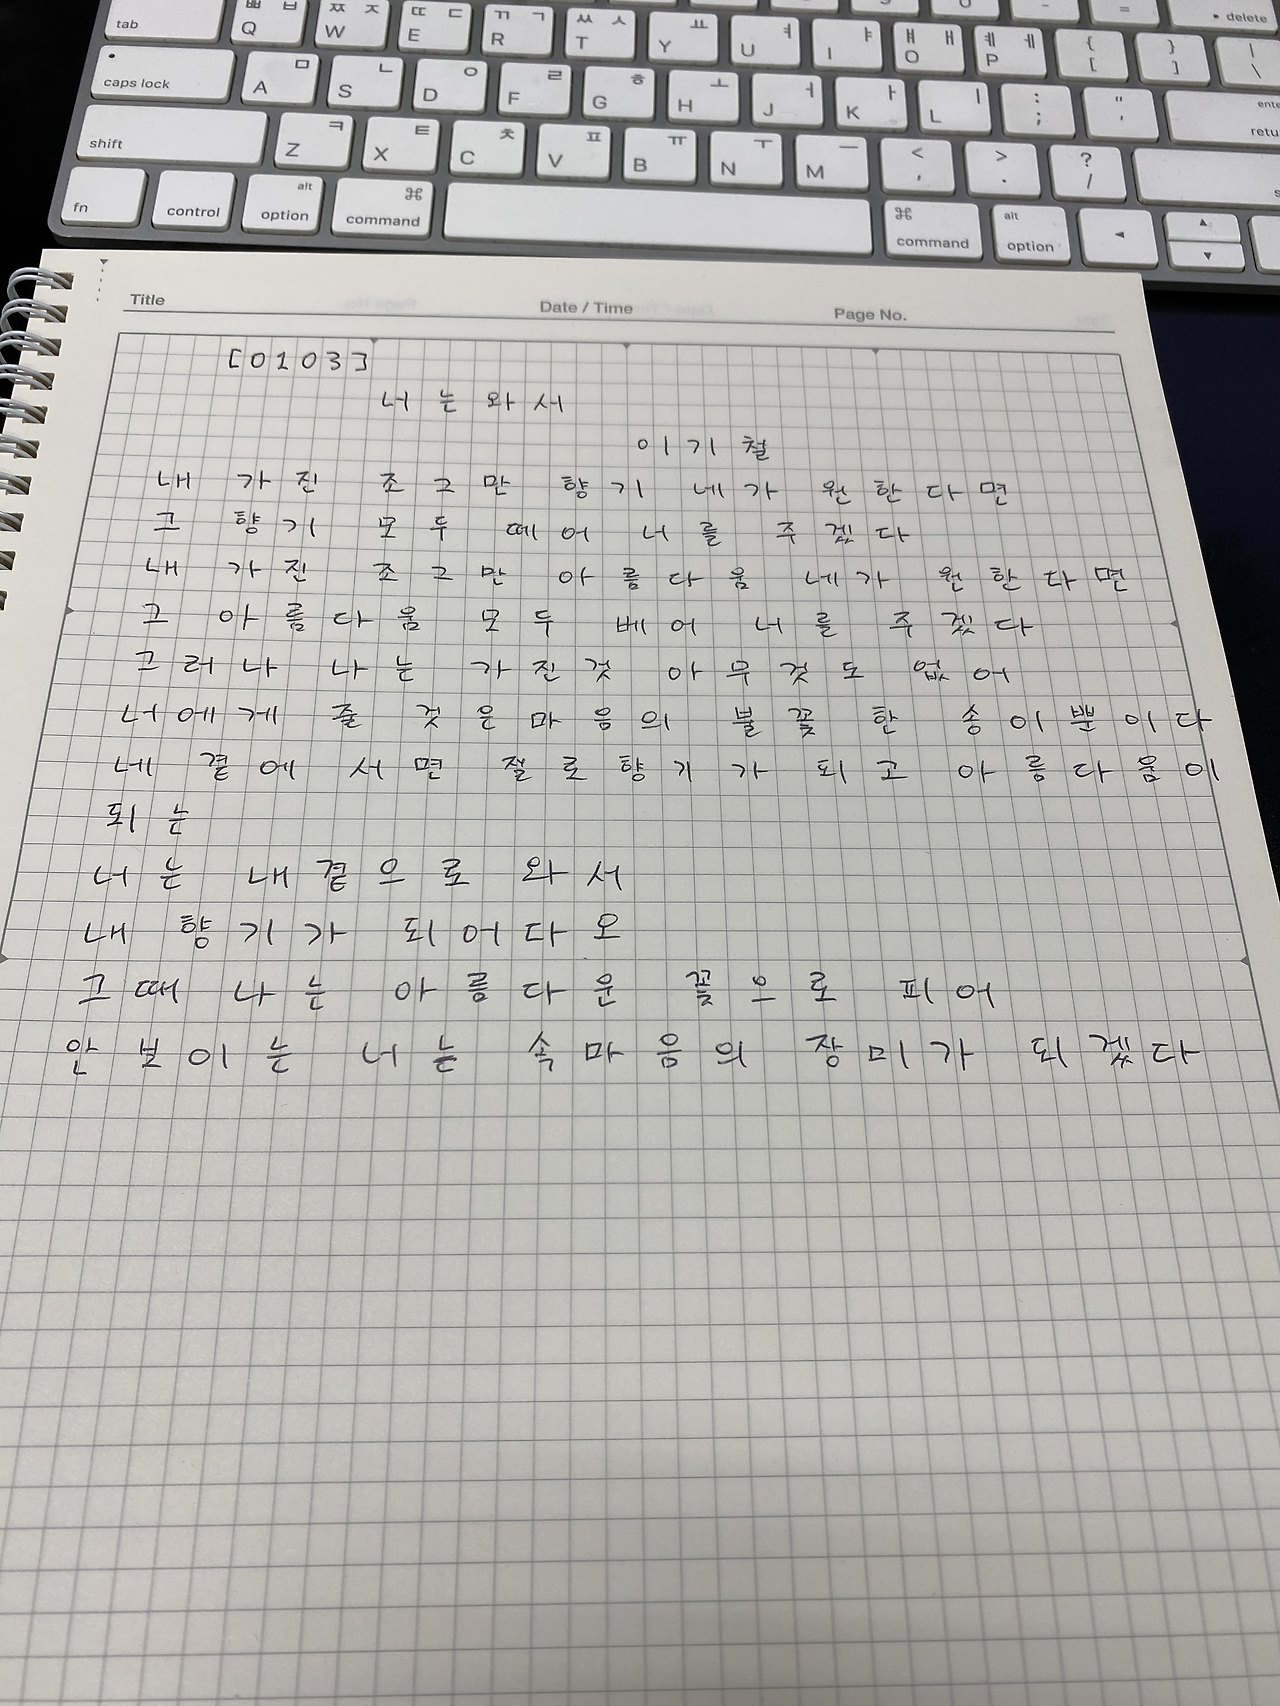 tab Q ㅃ ㅂ W ㅉ ㅈ E ㄸ ㄷ R ㄲ ㄱ T ㅆ ㅅ Y ㅛ U ㅕ I ㅑ O ㅒ ㅐ P ㅖ ㅔ { [ } ] | \ delete
caps lock A ㅁ S ㄴ D ㅇ F ㄹ G ㅎ H ㅗ J ㅓ K ㅏ L ㅣ : ; " '
shift Z ㅋ X ㅌ C ㅊ V ㅍ B ㅠ N ㅜ M ㅡ < , > . ? /
fn control alt option ⌘ command ⌘ command alt option ◄ ▲ ▼
Title Date / Time Page No.
[0103]
너는 와서
이기철
내 가진 조그만 향기 네가 원한다면
그 향기 모두 떼어 너를 주겠다
내 가진 조그만 아름다움 네가 원한다면
그 아름다움 모두 베어 너를 주겠다
그러나 나는 가진것 아무것도 없어
너에게 줄 것은 마음의 불꽃 한 송이뿐이다
네 곁에 서면 절로 향기가 되고 아름다움이
되는
너는 내 곁으로 와서
내 향기가 되어다오
그때 나는 아름다운 꽃으로 피어
안 보이는 너는 속마음의 장미가 되겠다